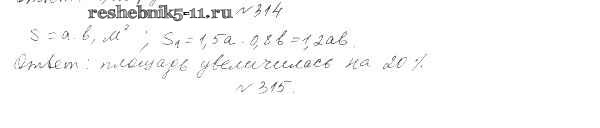 reshebnik5-11.ru № 314
S = a·b, м²; S₁ = 1,5a · 0,8b = 1,2ab.
Ответ: площадь увеличилась на 20 %.
№ 315.